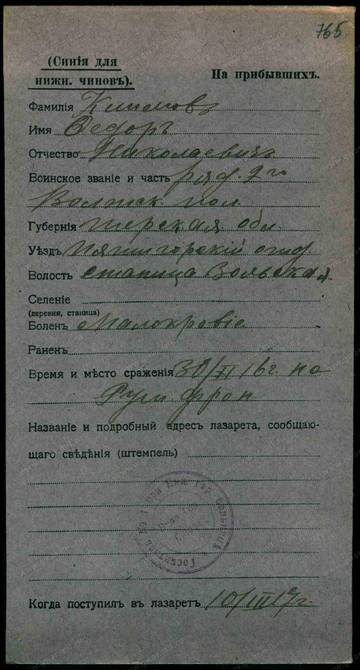 765
(Синія для
нижн. чиновъ).
На прибывшихъ.
Фамилія Климовъ
Имя Ѳедоръ
Отчество Николаевичъ
Воинское званіе и часть ряд. 2го
Волжск пол
Губернія Терская обл.
Уѣздъ Пятигорскій отд.
Волость станица
Селеніе
(деревня, станица)
Боленъ Малокровіе
Раненъ
Время и мѣсто сраженія 30/XI 16 г. на
Рум фрон
Названіе и подробный адресъ лазарета, сообщаю-
щаго свѣдѣнія (штемпель)
Когда поступилъ въ лазаретъ 10/III 17 г.